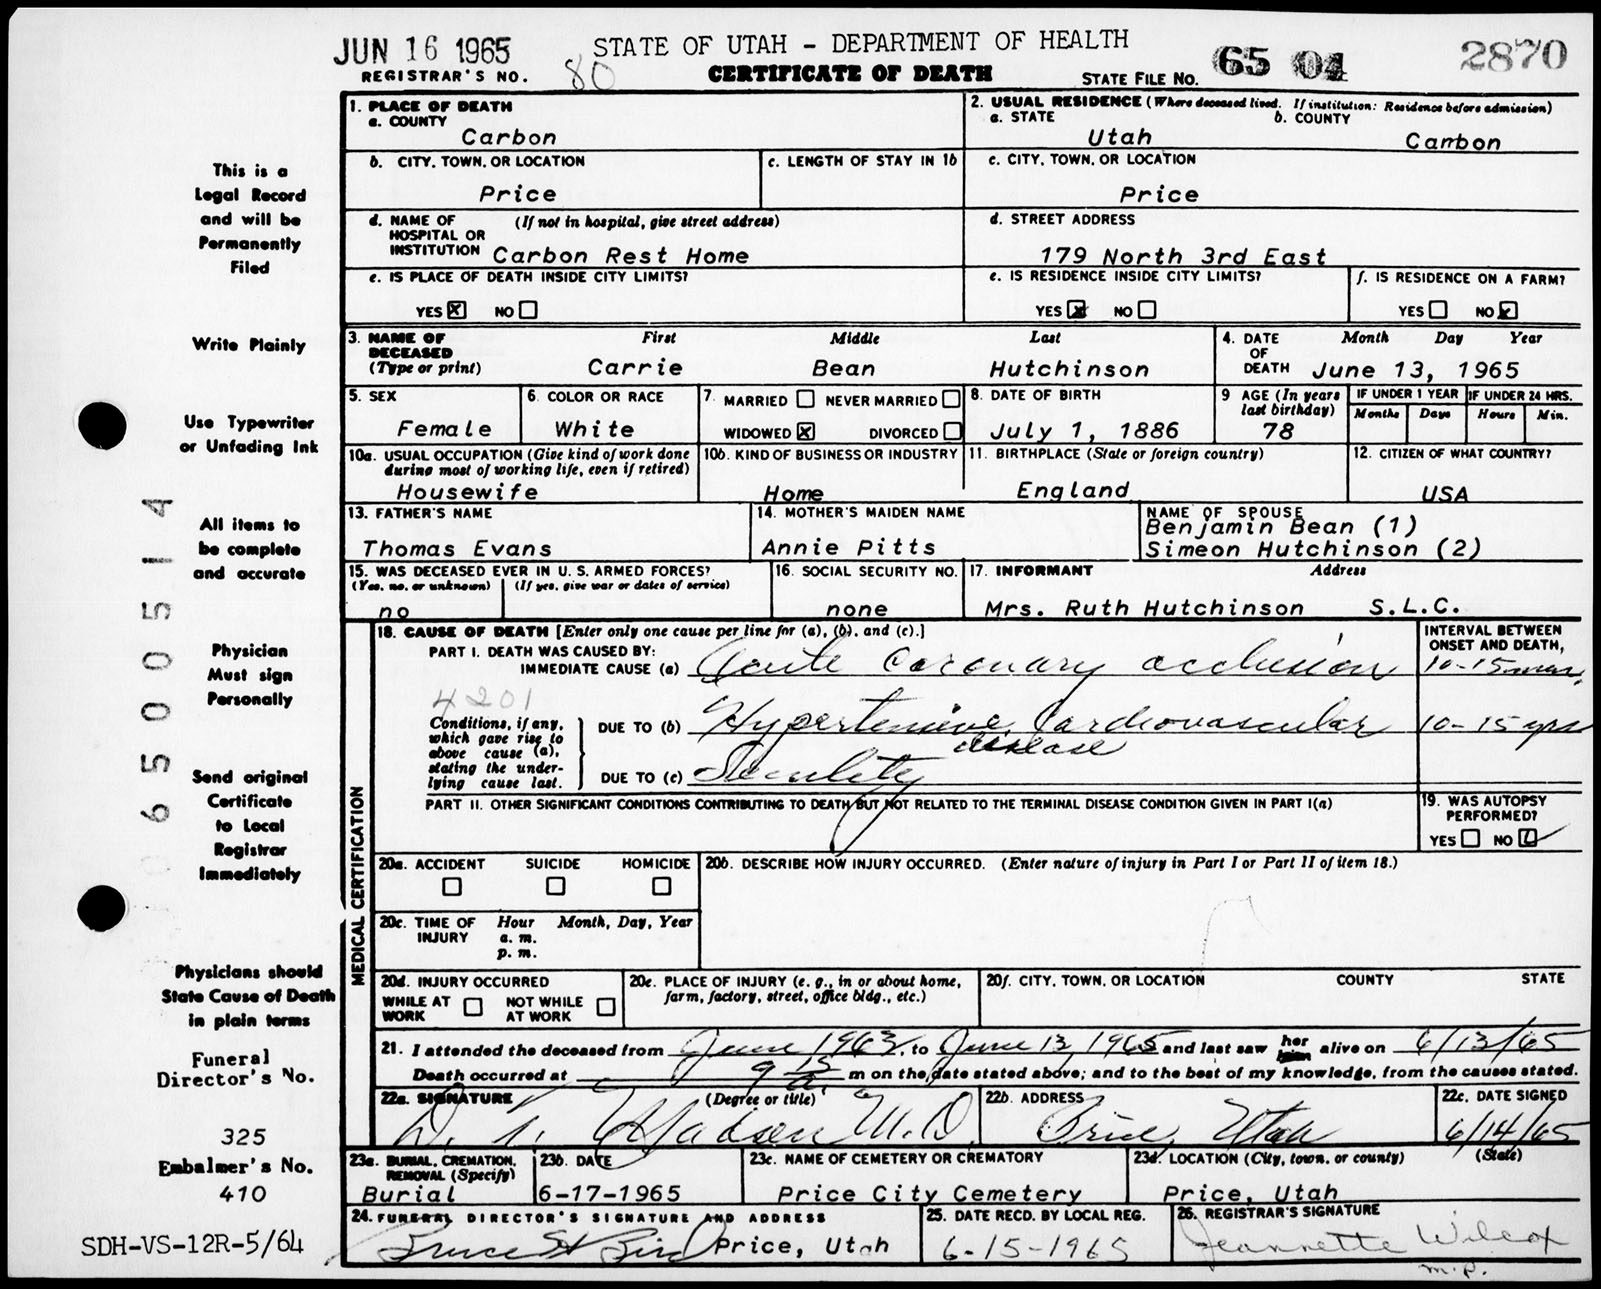 JUN 16 1965
STATE OF UTAH - DEPARTMENT OF HEALTH
REGISTRAR'S NO. 80
CERTIFICATE OF DEATH
STATE FILE NO. 65 04 2870
This is a
Legal Record
and will be
Permanently
Filed
Write Plainly
Use Typewriter
or Unfading Ink
All items to
be complete
and accurate
Physician
Must sign
Personally
Send original
Certificate
to Local
Registrar
Immediately
Physicians should
State Cause of Death
in plain terms
Funeral
Director's No.
325
Embalmer's No.
410
SDH-VS-12R-5/64
06500514
1. PLACE OF DEATH
a. COUNTY
Carbon
2. USUAL RESIDENCE (Where deceased lived. If institution: Residence before admission)
a. STATE b. COUNTY
Utah Carbon
b. CITY, TOWN, OR LOCATION
Price
c. LENGTH OF STAY IN 1b
c. CITY, TOWN, OR LOCATION
Price
d. NAME OF (If not in hospital, give street address)
HOSPITAL OR
INSTITUTION Carbon Rest Home
d. STREET ADDRESS
179 North 3rd East
e. IS PLACE OF DEATH INSIDE CITY LIMITS?
YES X NO
e. IS RESIDENCE INSIDE CITY LIMITS?
YES X NO
f. IS RESIDENCE ON A FARM?
YES NO X
3. NAME OF First Middle Last
DECEASED
(Type or print) Carrie Bean Hutchinson
4. DATE Month Day Year
OF
DEATH June 13, 1965
5. SEX
Female
6. COLOR OR RACE
White
7. MARRIED NEVER MARRIED
WIDOWED X DIVORCED
8. DATE OF BIRTH
July 1, 1886
9 AGE (In years
last birthday)
78
IF UNDER 1 YEAR IF UNDER 24 HRS.
Months Days Hours Min.
10a. USUAL OCCUPATION (Give kind of work done
during most of working life, even if retired)
Housewife
10b. KIND OF BUSINESS OR INDUSTRY
Home
11. BIRTHPLACE (State or foreign country)
England
12. CITIZEN OF WHAT COUNTRY?
USA
13. FATHER'S NAME
Thomas Evans
14. MOTHER'S MAIDEN NAME
Annie Pitts
NAME OF SPOUSE
Benjamin Bean (1)
Simeon Hutchinson (2)
15. WAS DECEASED EVER IN U. S. ARMED FORCES?
(Yes, no, or unknown) (If yes, give war or dates of service)
no
16. SOCIAL SECURITY NO.
none
17. INFORMANT Address
Mrs. Ruth Hutchinson S.L.C.
MEDICAL CERTIFICATION
18. CAUSE OF DEATH [Enter only one cause per line for (a), (b), and (c).]
INTERVAL BETWEEN
ONSET AND DEATH,
PART I. DEATH WAS CAUSED BY:
IMMEDIATE CAUSE (a) Acute coronary occlusion 10-15 min.
4201
Conditions, if any,
which gave rise to
above cause (a),
stating the under-
lying cause last.
DUE TO (b) Hypertensive Cardiovascular 10-15 yrs
disease
DUE TO (c) Senility
PART II. OTHER SIGNIFICANT CONDITIONS CONTRIBUTING TO DEATH BUT NOT RELATED TO THE TERMINAL DISEASE CONDITION GIVEN IN PART I(a)
19. WAS AUTOPSY
PERFORMED?
YES NO
20a. ACCIDENT SUICIDE HOMICIDE
20b. DESCRIBE HOW INJURY OCCURRED. (Enter nature of injury in Part I or Part II of item 18.)
20c. TIME OF Hour Month, Day, Year
INJURY a. m.
p. m.
20d. INJURY OCCURRED
WHILE AT NOT WHILE
WORK AT WORK
20e. PLACE OF INJURY (e. g., in or about home,
farm, factory, street, office bldg., etc.)
20f. CITY, TOWN, OR LOCATION COUNTY STATE
21. I attended the deceased from June 1963, to June 13, 1965 and last saw her him alive on 6/13/65
Death occurred at 9 15 a. m on the date stated above; and to the best of my knowledge, from the causes stated.
22a. SIGNATURE (Degree or title)
M.D.
22b. ADDRESS
Price, Utah
22c. DATE SIGNED
6/14/65
23a. BURIAL, CREMATION,
REMOVAL (Specify)
Burial
23b. DATE
6-17-1965
23c. NAME OF CEMETERY OR CREMATORY
Price City Cemetery
23d. LOCATION (City, town, or county) (State)
Price, Utah
24. FUNERAL DIRECTOR'S SIGNATURE AND ADDRESS
Price, Utah
25. DATE RECD. BY LOCAL REG.
6-15-1965
26. REGISTRAR'S SIGNATURE
Jeannette Wilcox
m.p.